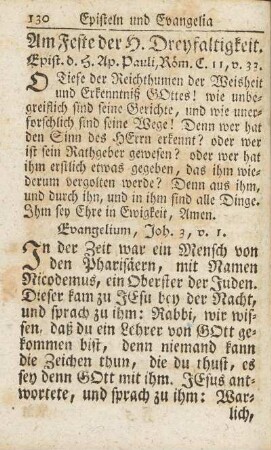 130 Episteln und Evangelia
Am Feste der H. Dreyfaltigkeit.
Epist. d. H. Ap. Pauli, Röm. C. 11, v. 33.
O Tiefe der Reichthumen der Weisheit
und Erkenntniß GOttes! wie unbe-
greiflich sind seine Gerichte, und wie uner-
forschlich sind seine Wege! Denn wer hat
den Sinn des HErrn erkennt? oder wer
ist sein Rathgeber gewesen? oder wer hat
ihm erstlich etwas gegeben, das ihm wie-
derum vergolten werde? Denn aus ihm,
und durch ihn, und in ihm sind alle Dinge.
Ihm sey Ehre in Ewigkeit, Amen.
Evangelium, Joh. 3, v. 1.
In der Zeit war ein Mensch von
den Pharisäern, mit Namen
Nicodemus, ein Oberster der Juden.
Dieser kam zu JEsu bey der Nacht,
und sprach zu ihm: Rabbi, wir wis-
sen, daß du ein Lehrer von GOtt ge-
kommen bist, denn niemand kann
die Zeichen thun, die du thust, es
sey denn GOtt mit ihm. JEsus ant-
wortete, und sprach zu ihm: War-
lich,